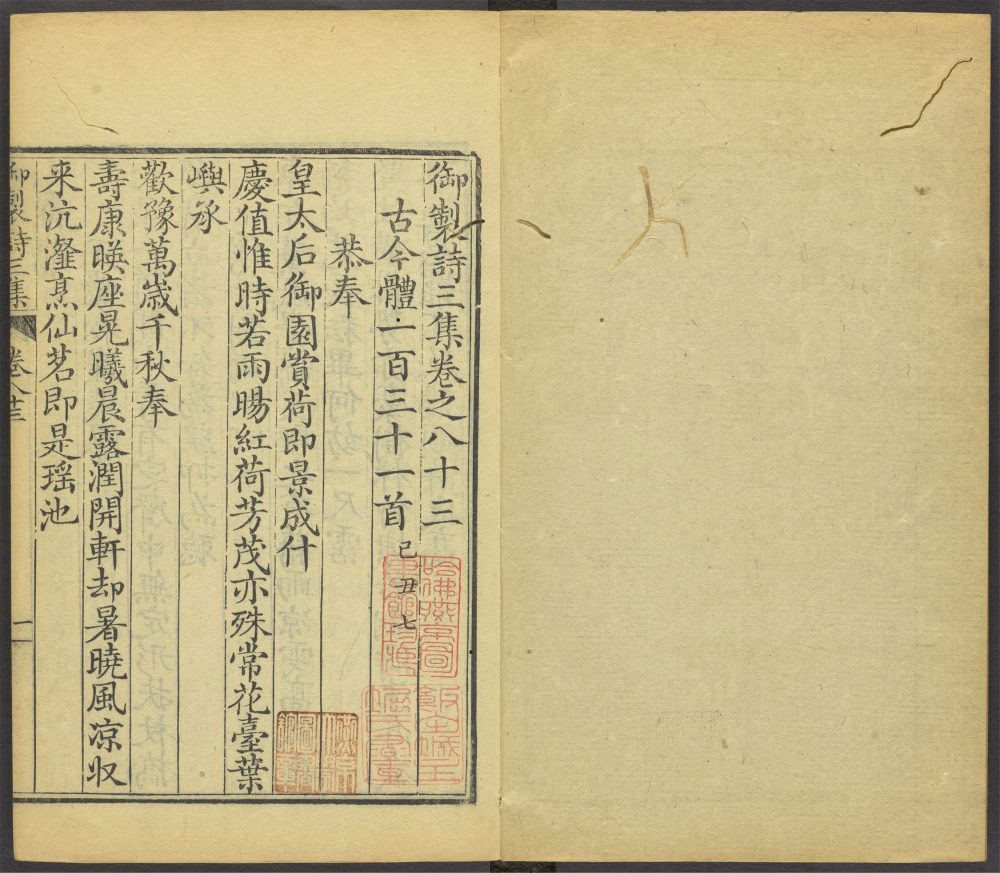 御製詩三集卷之八十三
古今體一百三十一首 己丑七
恭奉
皇太后御園賞荷即景成什
慶值惟時若雨暘紅荷芳茂亦殊常花臺葉
嶼承
歡豫萬歳千秋奉
壽康暎座晃曦晨露潤開軒却暑曉風凉収
来沆瀣烹仙茗即是瑶池
御製詩三集 卷八十三 一
哈佛燕京圖書館珍藏